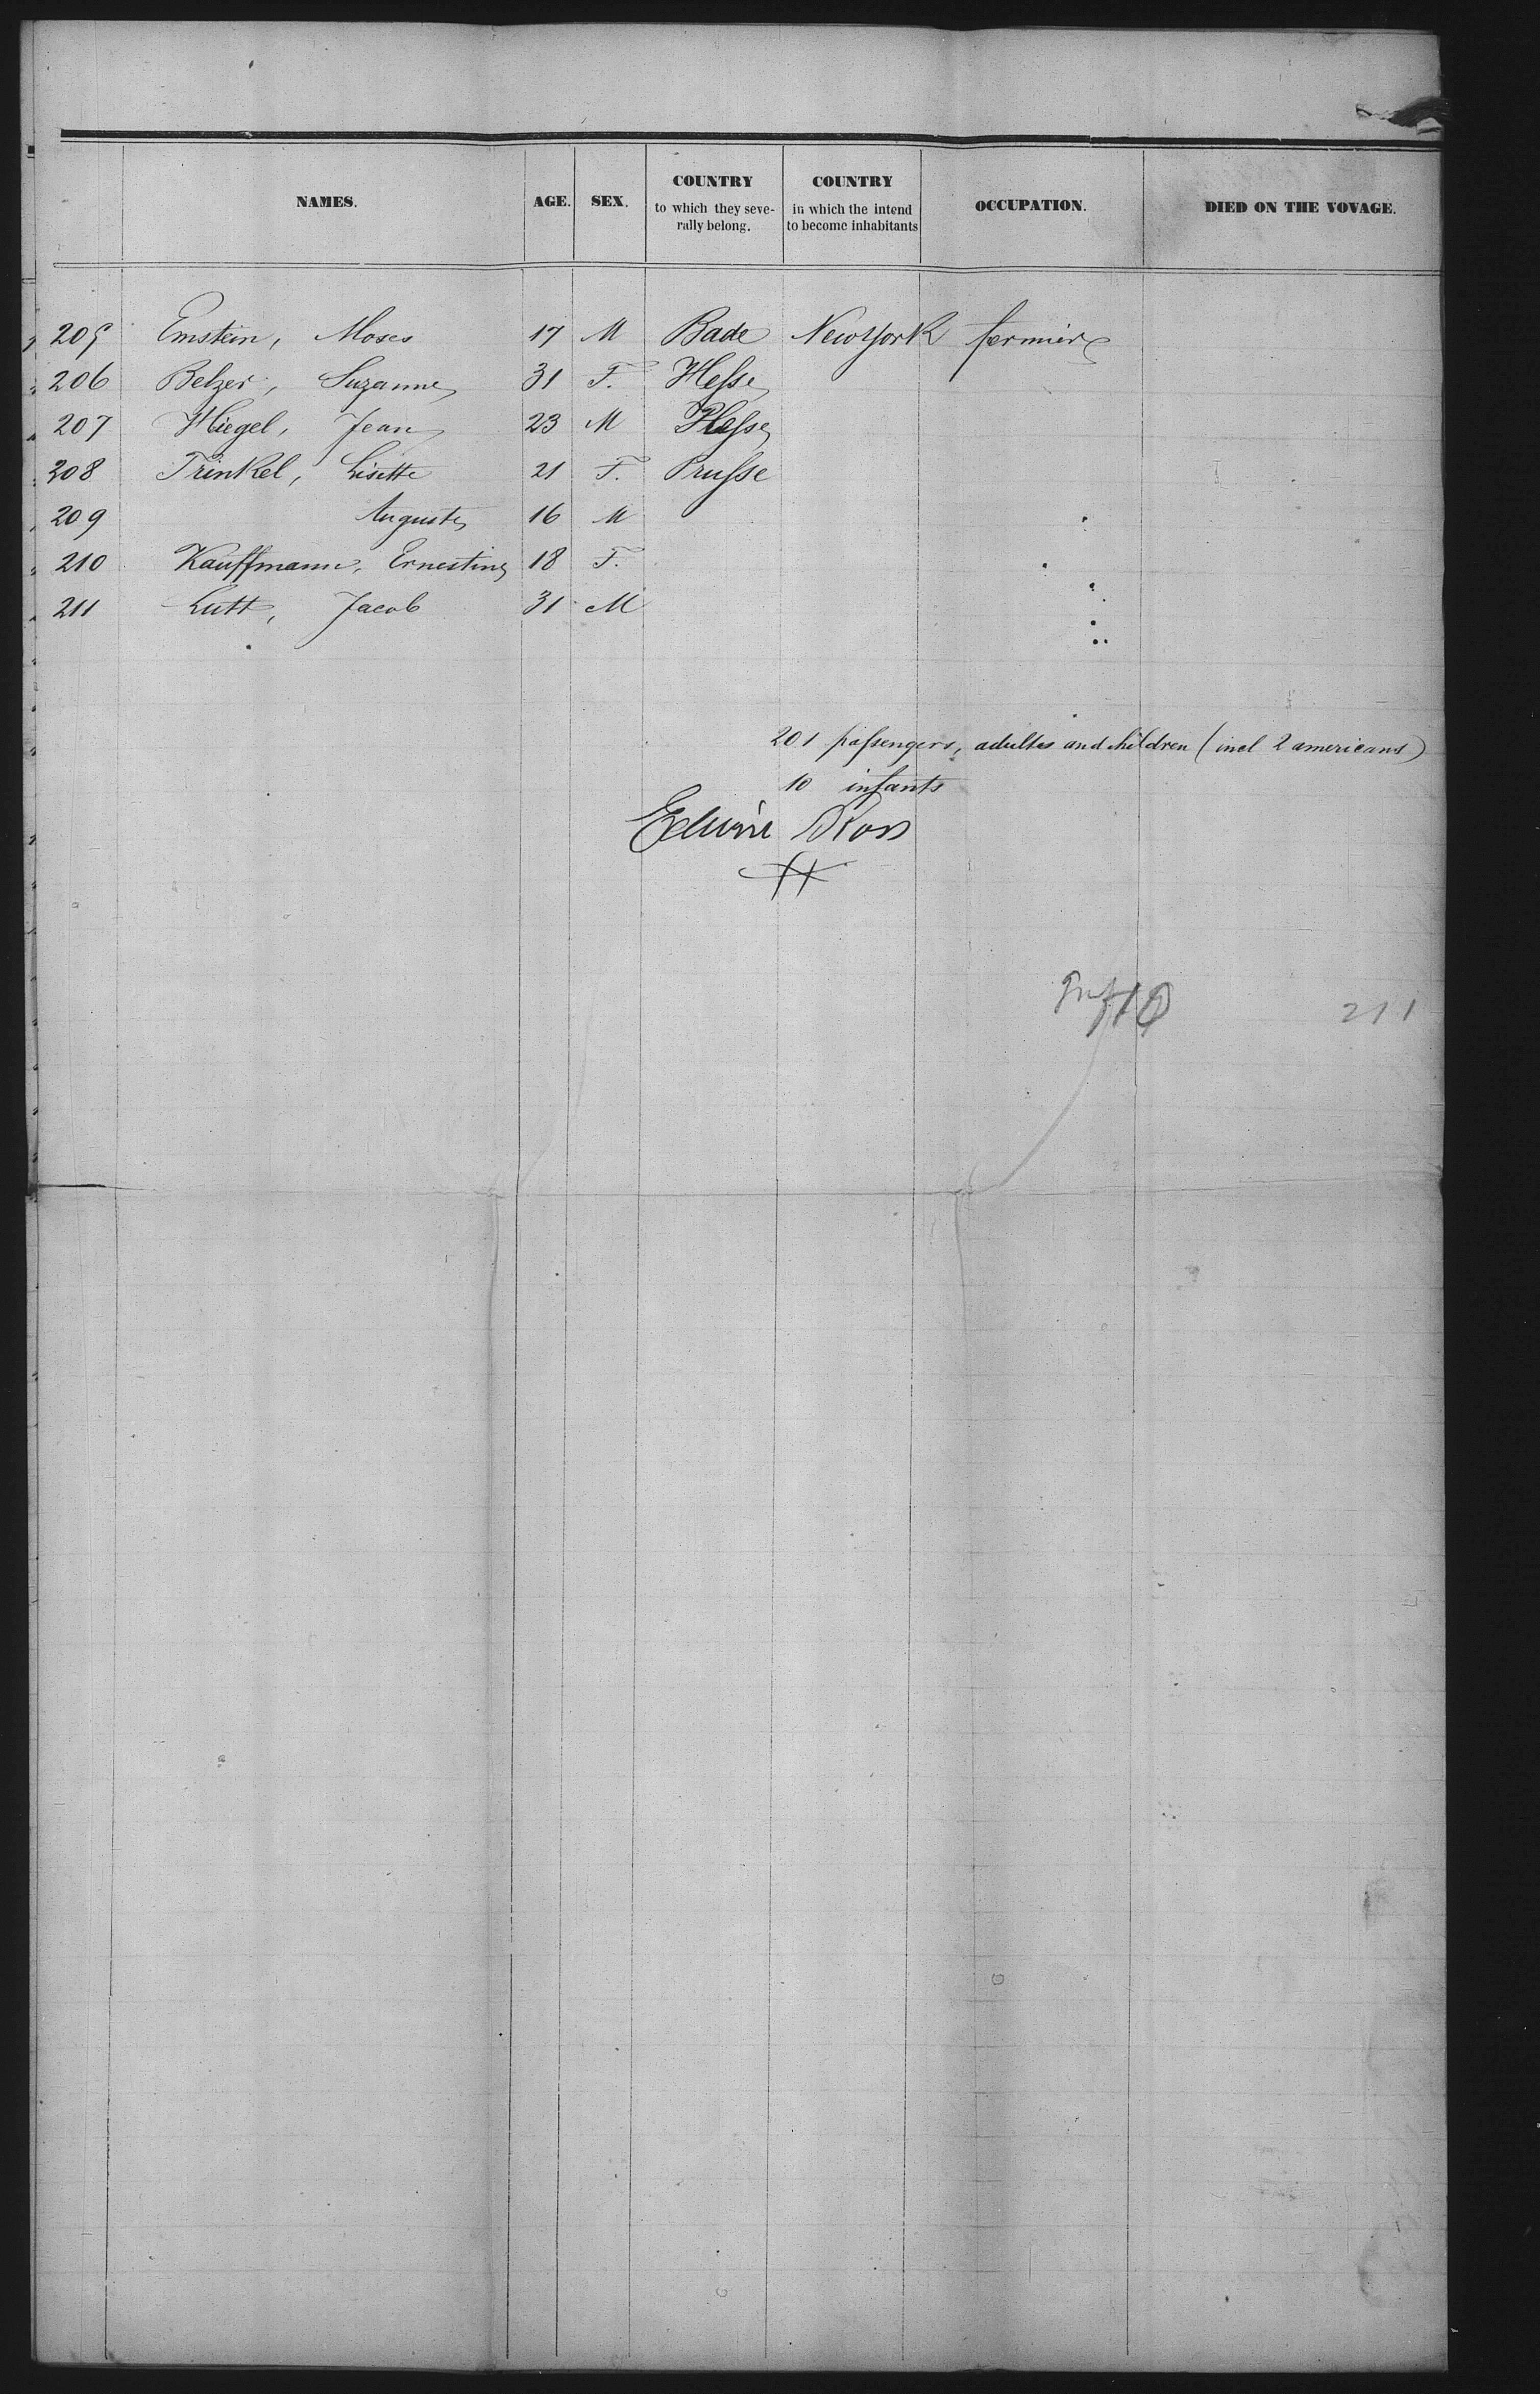 NAMES. AGE. SEX. COUNTRY to which they seve- rally belong. COUNTRY in which the intend to become inhabitants OCCUPATION. DIED ON THE VOVAGE.
205 Emstein, Moses 17 M Bade NewYork fermier
206 Belzer, Suzanne 31 F. Hesse
207 Hiegel, Jean 23 M Hesse
208 Trinkel, Lisette 21 F. Prusse
209 Auguste 16 M
210 Kauffmann, Ernestine 18 F.
211 Lutt, Jacob 31 M
201 passengers, adultes and children (incl 2 americans)
10 infants
Edwin Ross
Inf 10 211